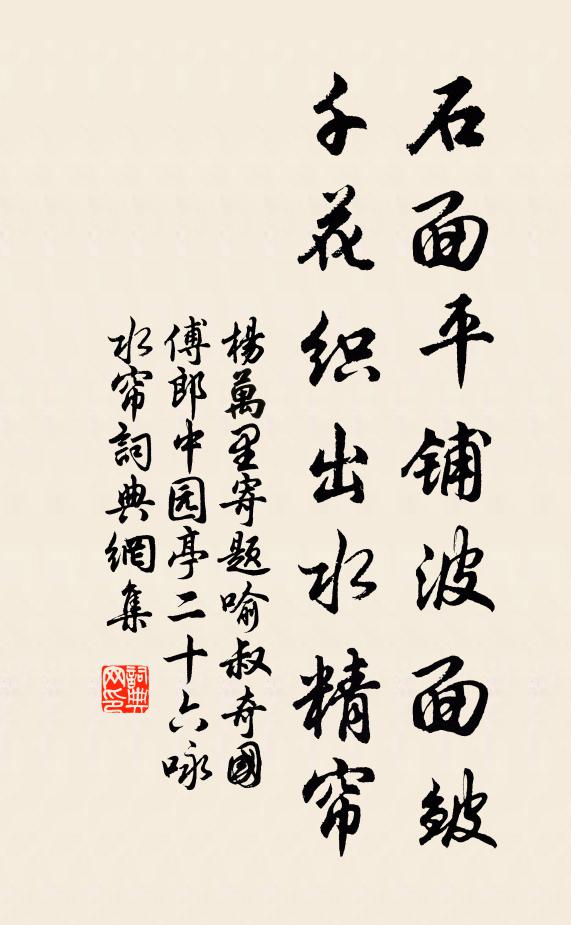 石面平铺波面皱
千花织出水精帘
楊萬里寄题喻叔奇國
傅郎中园亭二十六咏
水帘詞典網集
詞典
网印